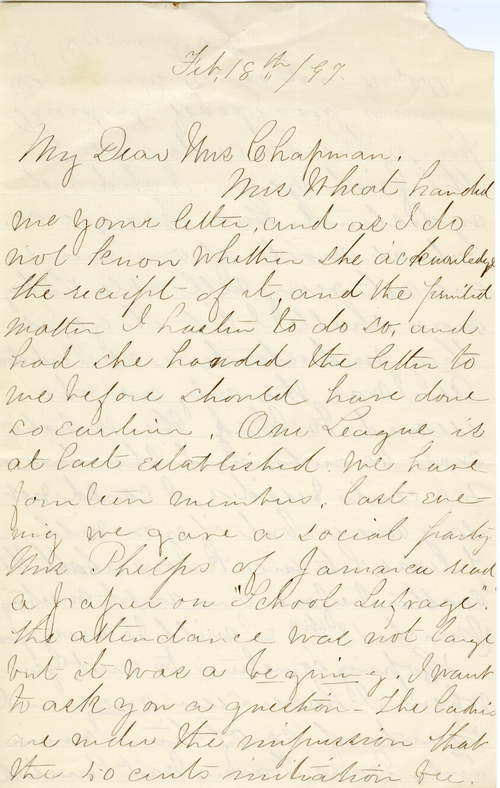 Feb, 18th/97.
My Dear Mrs Chapman.
Mrs Wheat handed
me your letter, and as I do
not know whether she acknowledge
the receipt of it, and the printed
matter I hasten to do so, and
had she handed the letter to
me before should have done
so earlier. Our League is
at last established. We have
fourteen members. Last eve-
ning we gave a social party
Mrs Phelps of Jamaica read
a paper on "School Sufrage".
the attendance was not large
but it was a begining. I want
to ask you a question - The ladies
are under the impression that
the 50 cents initiation fee.